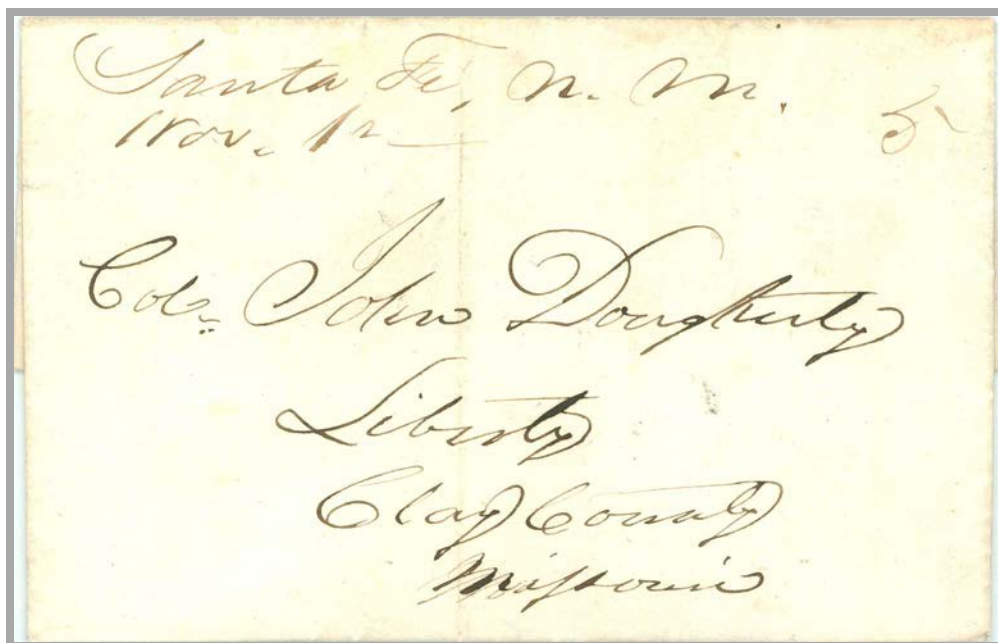 Santa Fé, N. M. 5
Nov. 12
Col. John Dougherty
Liberty
Clay County
Missouri